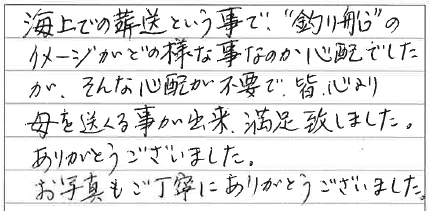 海上での葬送という事で、“釣り船”の
イメージがどの様な事なのか心配でした
が、そんな心配が不要で、皆、心より
母を送くる事が出来、満足致しました。
ありがとうございました。
お写真もご丁寧にありがとうございました。